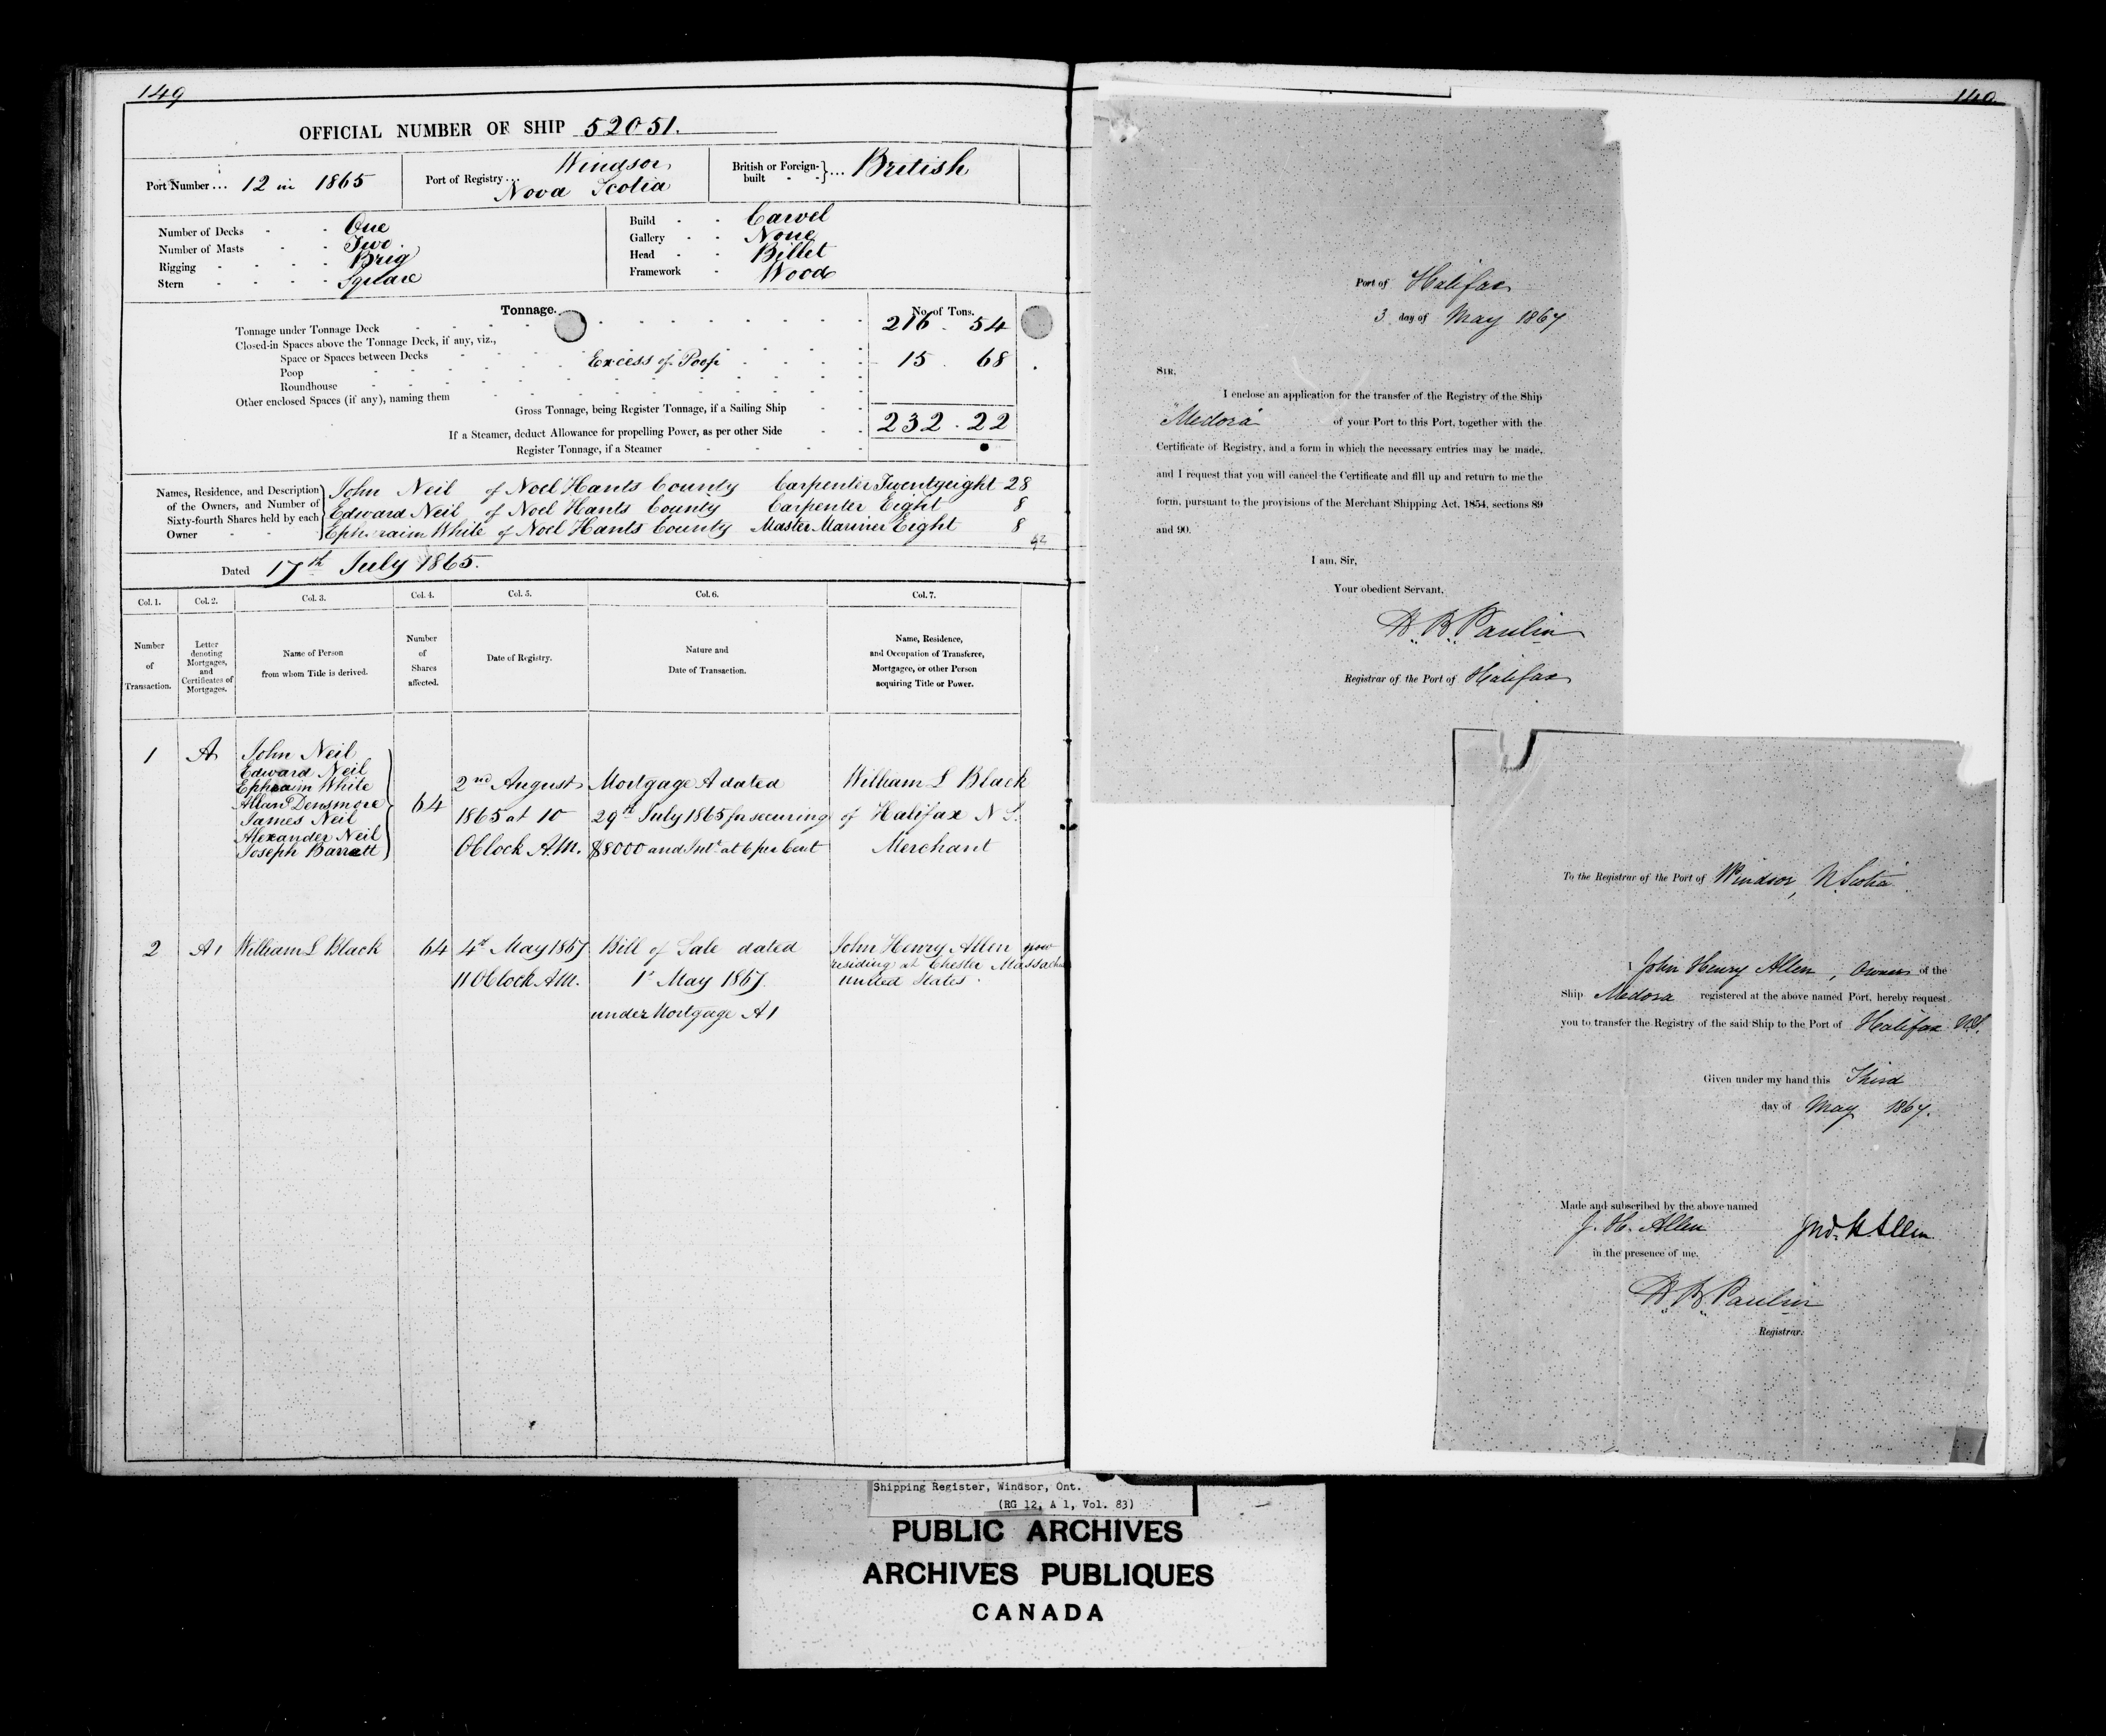 149
OFFICIAL NUMBER OF SHIP 52051.
Port Number ... 12 in 1865
Port of Registry ... Windsor Nova Scotia
British or Foreign-built - - } ... British
Number of Decks - - One
Number of Masts - - Two.
Rigging - - - - Brig
Stern - - - - Square
Build - - Carvel
Gallery - - None
Head - - Billet
Framework - Wood
Tonnage.
No. of Tons.
Tonnage under Tonnage Deck 216 . 54
Closed-in Spaces above the Tonnage Deck, if any, viz.,
Space or Spaces between Decks Excess of Poop 15 . 68
Poop
Roundhouse
Other enclosed Spaces (if any), naming them
Gross Tonnage, being Register Tonnage, if a Sailing Ship 232 . 22
If a Steamer, deduct Allowance for propelling Power, as per other Side
Register Tonnage, if a Steamer
Names, Residence, and Description of the Owners, and Number of Sixty-fourth Shares held by each Owner
John Neil of Noel Hants County Carpenter Twentyeight 28
Edward Neil of Noel Hants County Carpenter Eight 8
Ephraim White of Noel Hants County Master Mariner Eight 8
Dated 17th July 1865.
Col. 1. Col. 2. Col. 3. Col. 4. Col. 5. Col. 6. Col. 7.
Number of Transaction.
Letter denoting Mortgages, and Certificates of Mortgages.
Name of Person from whom Title is derived.
Number of Shares affected.
Date of Registry.
Nature and Date of Transaction.
Name, Residence, and Occupation of Transferee, Mortgagee, or other Person acquiring Title or Power.
1 A
John Neil
Edward Neil
Ephraim White
Allan Densmore
James Neil
Alexander Neil
Joseph Barrett
64
2nd August
1865 at 10
Oclock A.M.
Mortgage A dated
29th July 1865 for securing
$8000 and Int. at 6 per Cent
William L Black
of Halifax N S.
Merchant
2 A1 William L Black 64
4th May 1867
11 Oclock AM.
Bill of Sale dated
1st May 1867.
under Mortgage A1
John Henry Allen now
residing at Chester Massachu
United States.
Port of Halifax
3 day of May 1867
SIR,
I enclose an application for the transfer of the Registry of the Ship
"Medora" of your Port to this Port, together with the
Certificate of Registry, and a form in which the necessary entries may be made,
and I request that you will cancel the Certificate and fill up and return to me the
form, pursuant to the provisions of the Merchant Shipping Act, 1854, sections 89
and 90.
I am, Sir,
Your obedient Servant,
H. B. Paulin
Registrar of the Port of Halifax
To the Registrar of the Port of Windsor, N. Scotia
I John Henry Allen, Owner of the
Ship Medora registered at the above named Port, hereby request
you to transfer the Registry of the said Ship to the Port of Halifax N.S.
Given under my hand this Third
day of May 1867.
Made and subscribed by the above named
J. H. Allen
Jno. H. Allen
in the presence of me,
H. B. Paulin
Registrar.
Shipping Register, Windsor, Ont.
(RG 12, A 1, Vol. 83)
PUBLIC ARCHIVES
ARCHIVES PUBLIQUES
CANADA